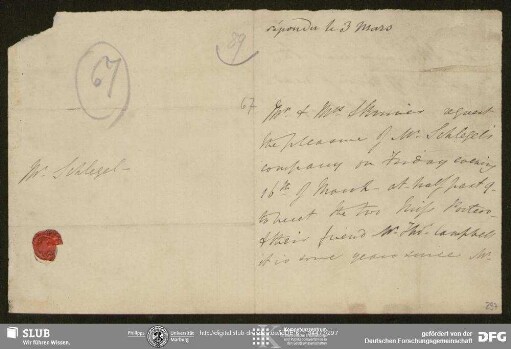 répondu le 3 Mars
89
67
67
Mr. & Mrs. Skinner request
the pleasure of Mr. Schlegel's
company on Friday evening
16th of March - at half past 9
to meet the two Miss Porters
& their friend Mr. Thos. Campbell
it is some years since Mr.
Mr. Schlegel -
SLUB
Wir führen Wissen.
Philipps
Universität
Marburg
gefördert von der
Deutschen Forschungsgemeinschaft
DFG